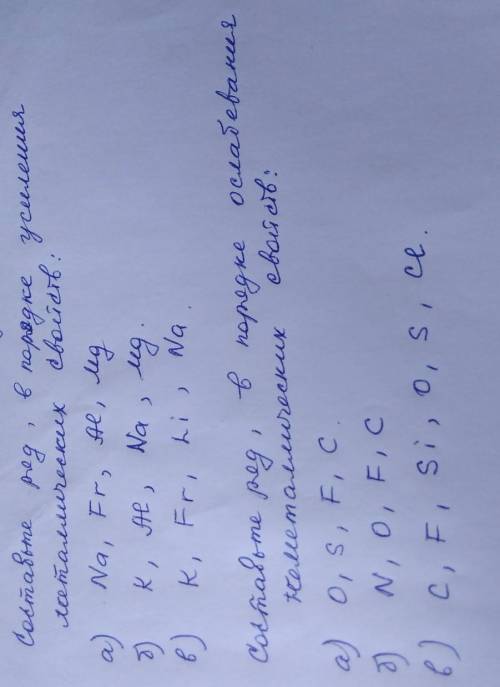 Составьте ряд, в порядке усиления
металлических свойств:
а) Na, Fr, Al, Mg
б) K, Al, Na, Mg.
в) K, Fr, Li, Na.
Составьте ряд, в порядке ослабевания
неметаллических свойств:
а) O, S, F, C.
б) N, O, F, C
в) C, F, Si, O, S, Cl.